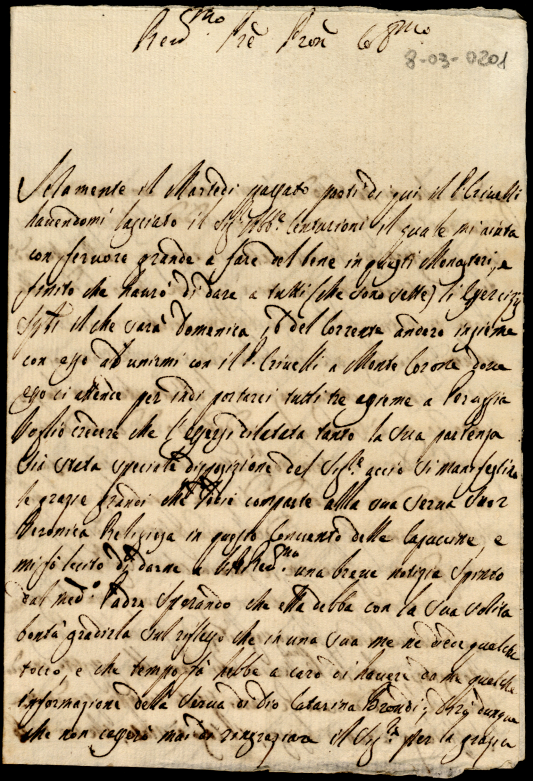 Rev.mo Prē Pron Col.mo
8-03-0201
Solamente il Martedi passato parti di qui il P. Crivelli
havendomi lasciato il Sig.r Abb.e Centurioni il quale mi aiuta
con fervore grande a fare del bene in questi Monasteri, e
finito che havrò di dare a tutti (che sono sette) li Esercizij
il che sarà Domenica del corrente anderò insieme
con esso ad unirmi con il P. Crivelli a Monte Corona dove
esso ci attende per indi portarci tutti tre assieme a Peruggia
Voglio credere che l'essersi dilatata tanto la sua partenza
sia stata speciale disposizione del Sig.re acciò si manifestino
le grazie grandi che comparte alla sua serva Suor
Veronica Religiosa in questo Convento delle Capuccine, e
mi fò lecito di darne a Rev.mo una breve notizia spinto
dal med.o Padre sperando che ella debba con la sua solita
bontà gradirla sul riflesso che in una sua me ne diede qualche
tocco, e che tempo fà hebbe a caro di havere da me qualche
informazione della Serva di Dio Catarina Brondi; dunque
che non cesserò mai di ringraziare il Sig.re per la grazia